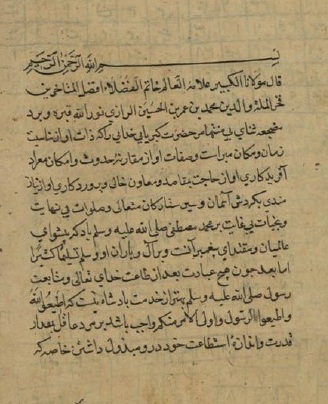 بسم الله الرحمن الرحيم
قال مولانا الكبير علامة العالم خاتم الفضلاء افضل المتاخرين
فخر الملة والدين محمد بن عمر بن الحسين الرازي نور الله قبره وبرد
مضجعه ثنای بی منتها مر حضرت کبریای خدایی را که ذات او از مناسبت
زمان و مکان مبراست وصفات او از مقارنت حدوث و امکان معرا
آفریدکاری او از حاجت بمقاصد و معاون خالی و پروردکاری او از نیاز
مندی بکردش آسمان و سیر ستارکان متعالی وصلوات بی نهایت
وتحیات بی غایت بر محمد مصطفی صلی الله علیه وسلم باد که پیشوای
عالمیان و مقتدای پیغمبرانست وبر آل ویاران او وسلم تسلیما کثیرا
اما بعد چون هیچ عبادت بعد از طاعت خدای تعالی ومتابعت
رسول صلی الله علیه وسلم بهتر از خدمت پادشاه نیست که اطیعوا الله
واطیعوا الرسول واولی الامر منکم واجب باشد بر هر عاقل بمقدار
قدرت واندازهٔ استطاعت خود در و مبذول داشتن خاصه که